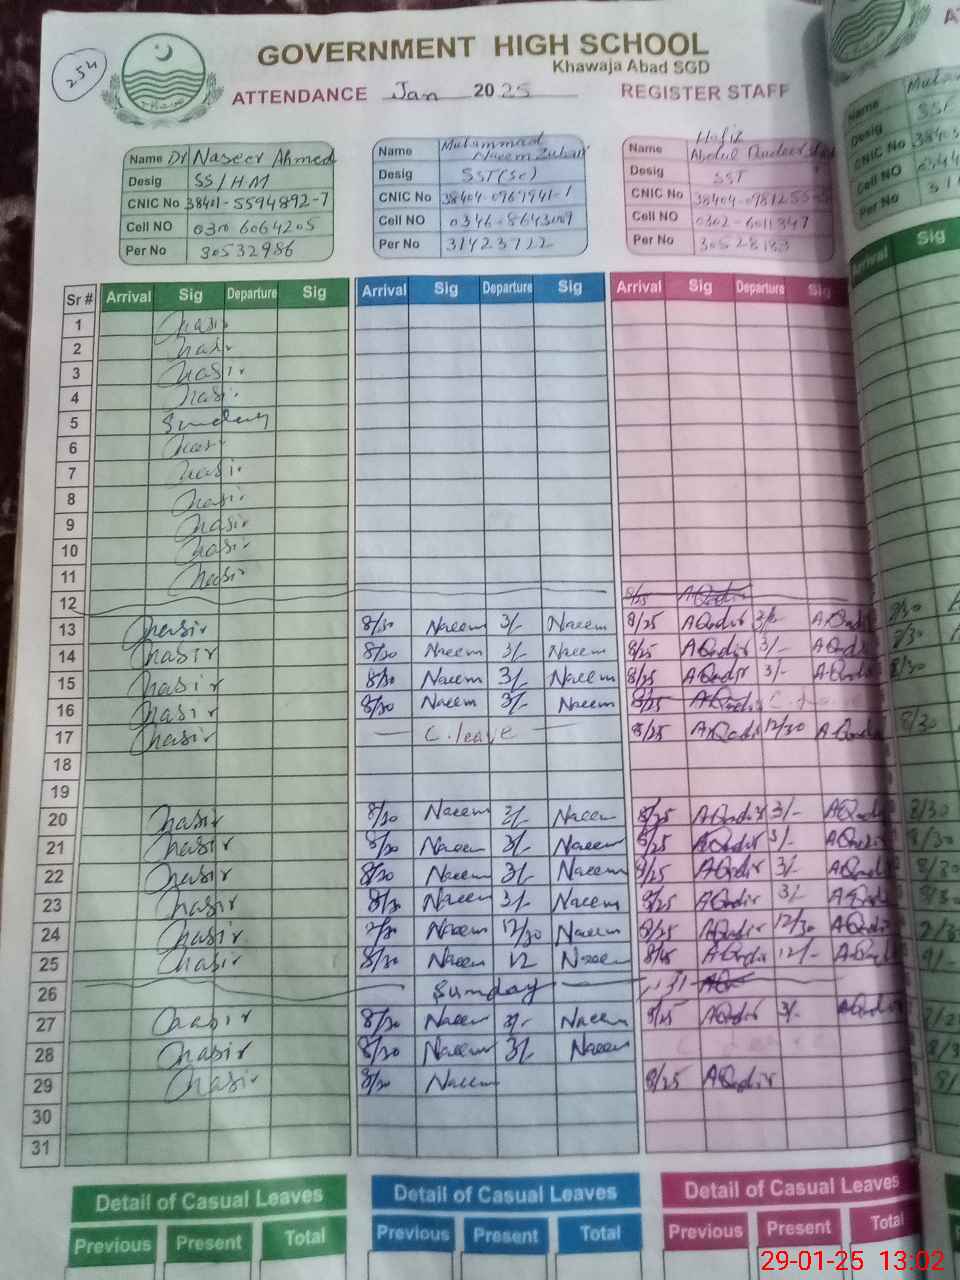 254
GOVERNMENT HIGH SCHOOL
Khawaja Abad SGD
ATTENDANCE Jan 2025 REGISTER STAFF
Name Dr Naseer Ahmed
Desig SS/HM
CNIC No 38401-5594892-7
Cell NO 0300 6064205
Per No 30532986
Name Muhammad Naeem Zubair
Desig SST(Sc)
CNIC No 38404-0967941-1
Cell NO 0346-8643009
Per No 31423722
Name Hafiz Abdul Qadeer
Desig SST
CNIC No 38404-0981255
Cell NO 0302-6011347
Per No 30528183
Name
Desig SST
CNIC No 38403
Cell NO
Per No
Sr # Arrival Sig Departure Sig Arrival Sig Departure Sig Arrival Sig Departure Sig Arrival Sig
1 Nasir
2 Nasir
3 Nasir
4 Nasir
5 Sunday
6 Nasir
7 Nasir
8 Nasir
9 Nasir
10 Nasir
11 Nasir
12 8/25 AQadir
13 Nasir 8/30 Naeem 3/- Naeem 8/25 AQadir 3/- AQadir 8/30
14 Nasir 8/30 Naeem 3/- Naeem 8/25 AQadir 3/- AQadir 8/30
15 Nasir 8/30 Naeem 3/- Naeem 8/25 AQadir 3/- AQadir 8/30
16 Nasir 8/30 Naeem 3/- Naeem 8/25 AQadir
17 Nasir C.leave 8/25 AQadir 12/30 AQadir 8/30
18
19
20 Nasir 8/30 Naeem 3/- Naeem 8/25 AQadir 3/- AQadir 8/30
21 Nasir 8/30 Naeem 3/- Naeem 8/25 AQadir 3/- AQadir 8/30
22 Nasir 8/30 Naeem 3/- Naeem 8/25 AQadir 3/- AQadir 8/30
23 Nasir 8/30 Naeem 3/- Naeem 8/25 AQadir 3/- AQadir 8/30
24 Nasir 8/30 Naeem 12/30 Naeem 8/25 AQadir 12/30 AQadir
25 Nasir 8/30 Naeem 12 Naeem 8/45 AQadir 12/- AQadir 9/-
26 Sunday
27 Nasir 8/30 Naeem 3/- Naeem 8/25 AQadir 3/- AQadir
28 Nasir 8/30 Naeem 3/- Naeem
29 Nasir 8/30 Naeem 8/25 AQadir
30
31
Detail of Casual Leaves Detail of Casual Leaves Detail of Casual Leaves
Previous Present Total Previous Present Total Previous Present Total
29-01-25 13:02